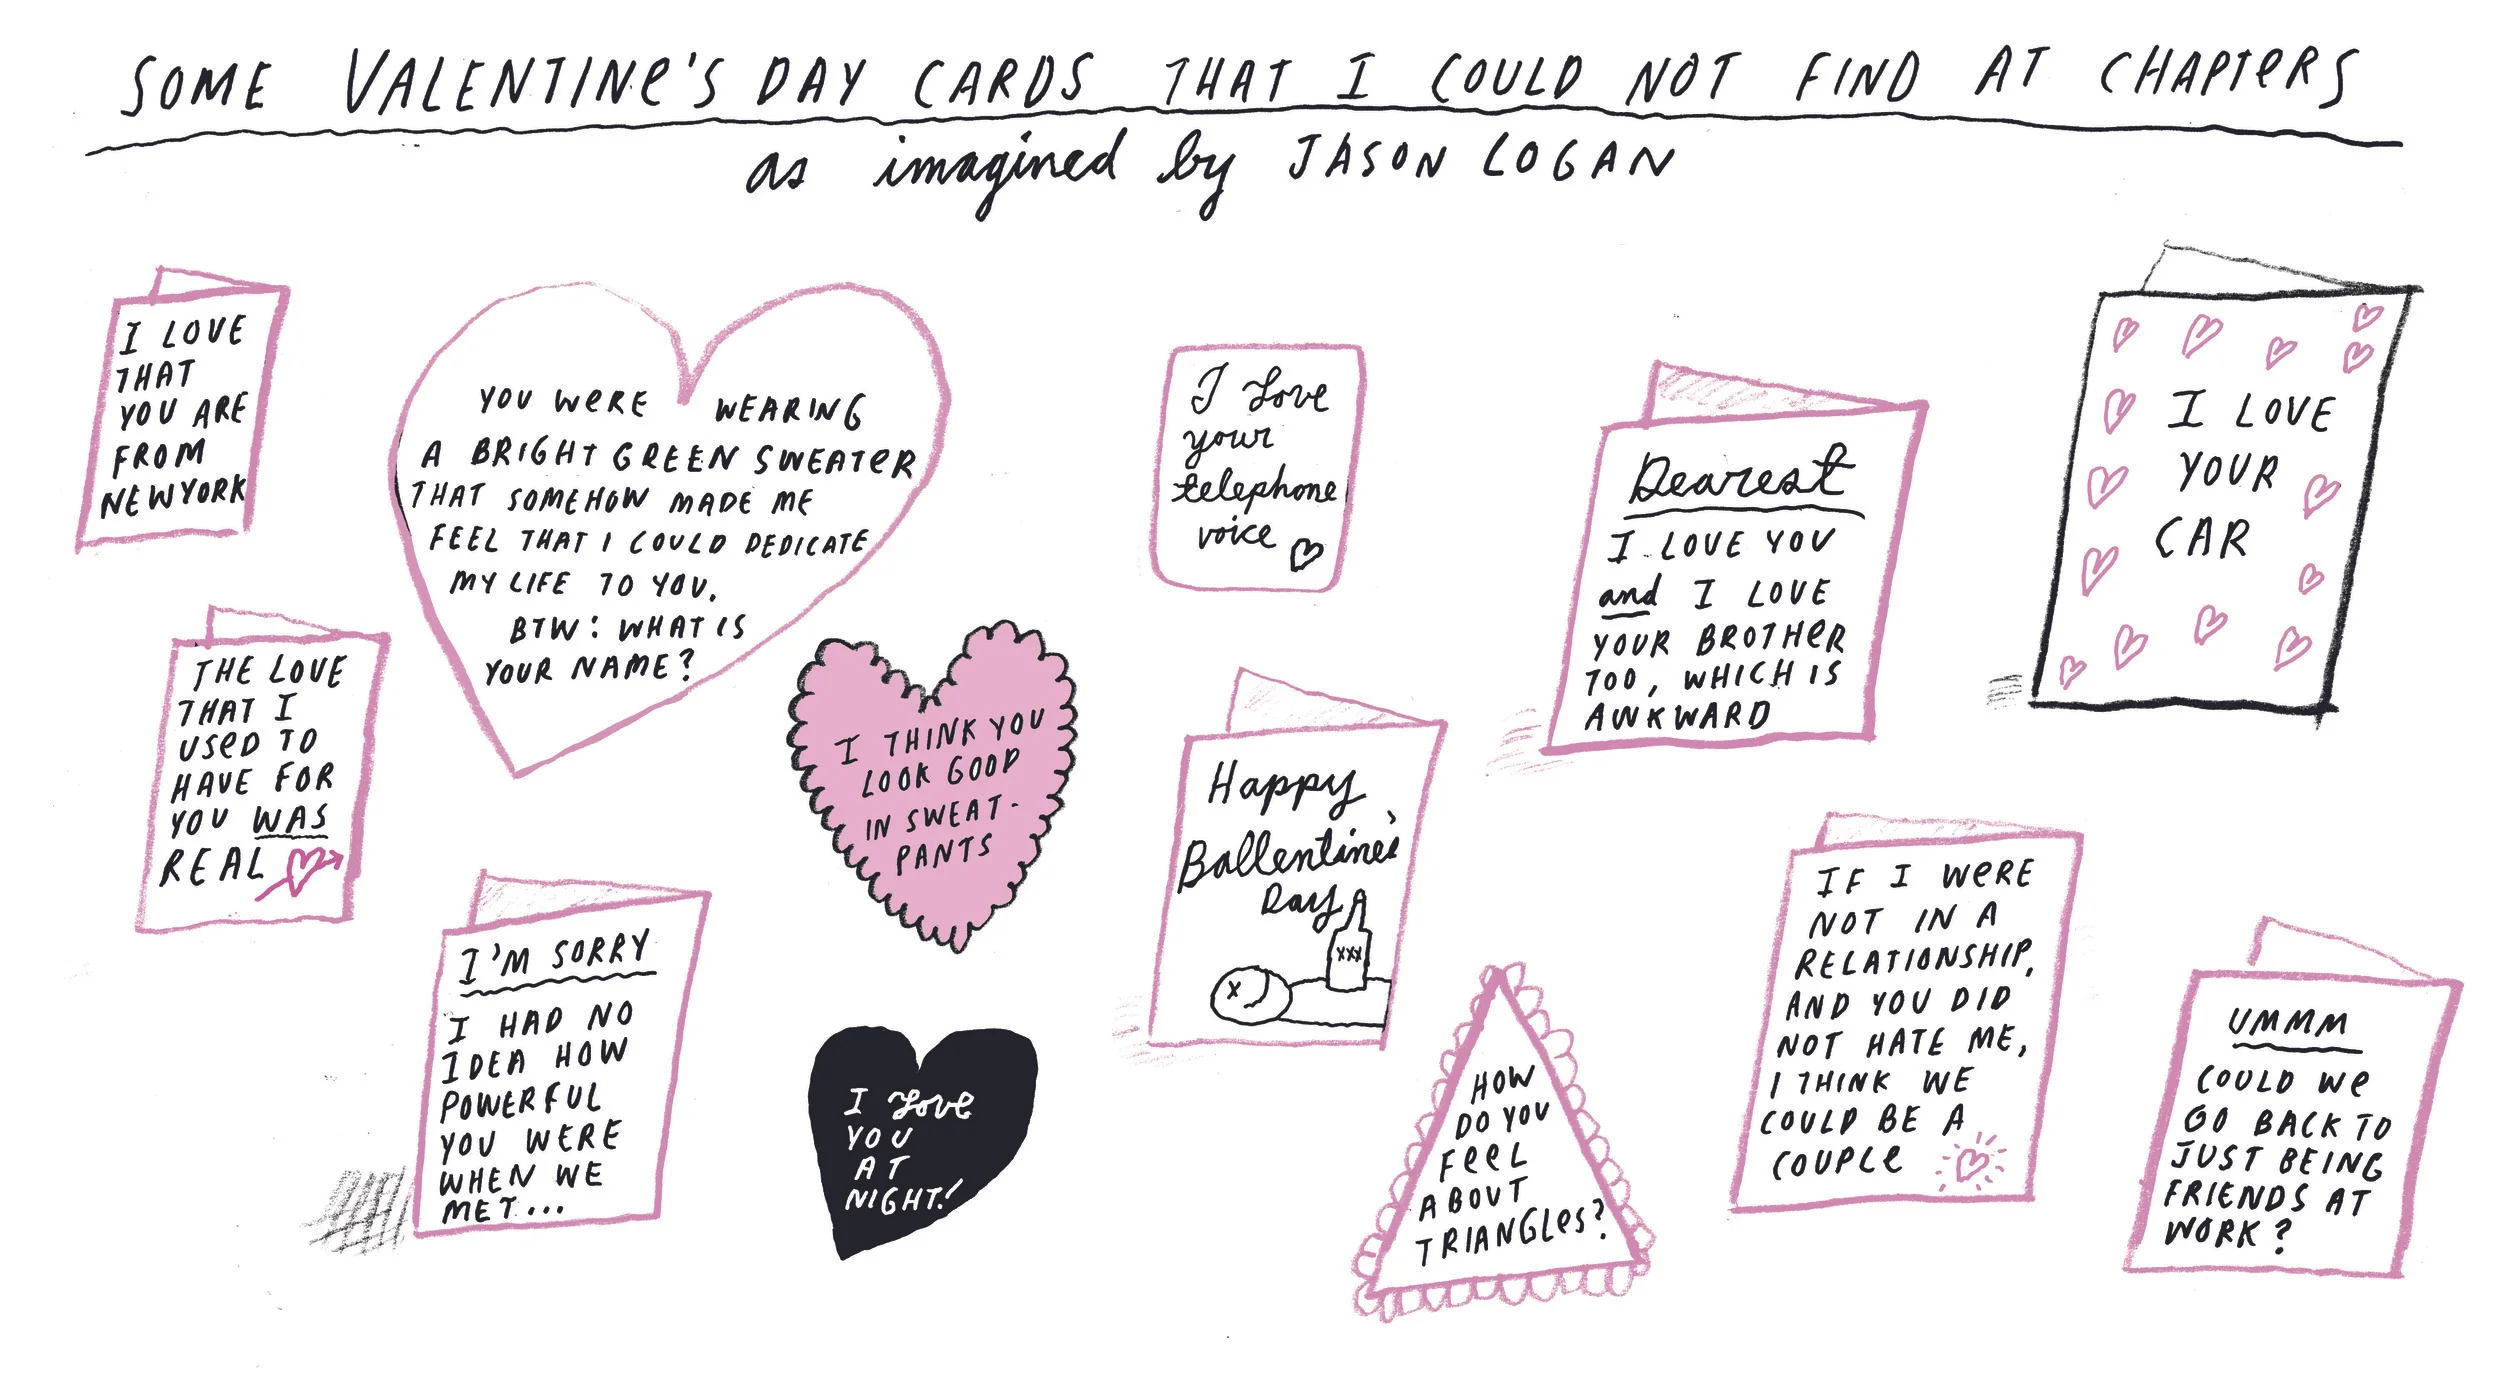 SOME VALENTINE'S DAY CARDS THAT I COULD NOT FIND AT CHAPTERS
as imagined by JASON LOGAN
I LOVE
THAT
YOU ARE
FROM
NEW YORK
YOU WERE WEARING
A BRIGHT GREEN SWEATER
THAT SOMEHOW MADE ME
FEEL THAT I COULD DEDICATE
MY LIFE TO YOU.
BTW: WHAT IS
YOUR NAME?
I Love
your
telephone
voice
Dearest
I LOVE YOU
and I LOVE
YOUR BROTHER
TOO, WHICH IS
AWKWARD
I LOVE
YOUR
CAR
THE LOVE
THAT I
USED TO
HAVE FOR
YOU WAS
REAL
I THINK YOU
LOOK GOOD
IN SWEAT-
PANTS
Happy
Ballentine's
Day
XXX
X
I'M SORRY
I HAD NO
IDEA HOW
POWERFUL
YOU WERE
WHEN WE
MET...
I Love
YOU
AT
NIGHT!
HOW
DO YOU
FEEL
ABOUT
TRIANGLES?
IF I WERE
NOT IN A
RELATIONSHIP,
AND YOU DID
NOT HATE ME,
I THINK WE
COULD BE A
COUPLE
UMMM
COULD WE
GO BACK TO
JUST BEING
FRIENDS AT
WORK?